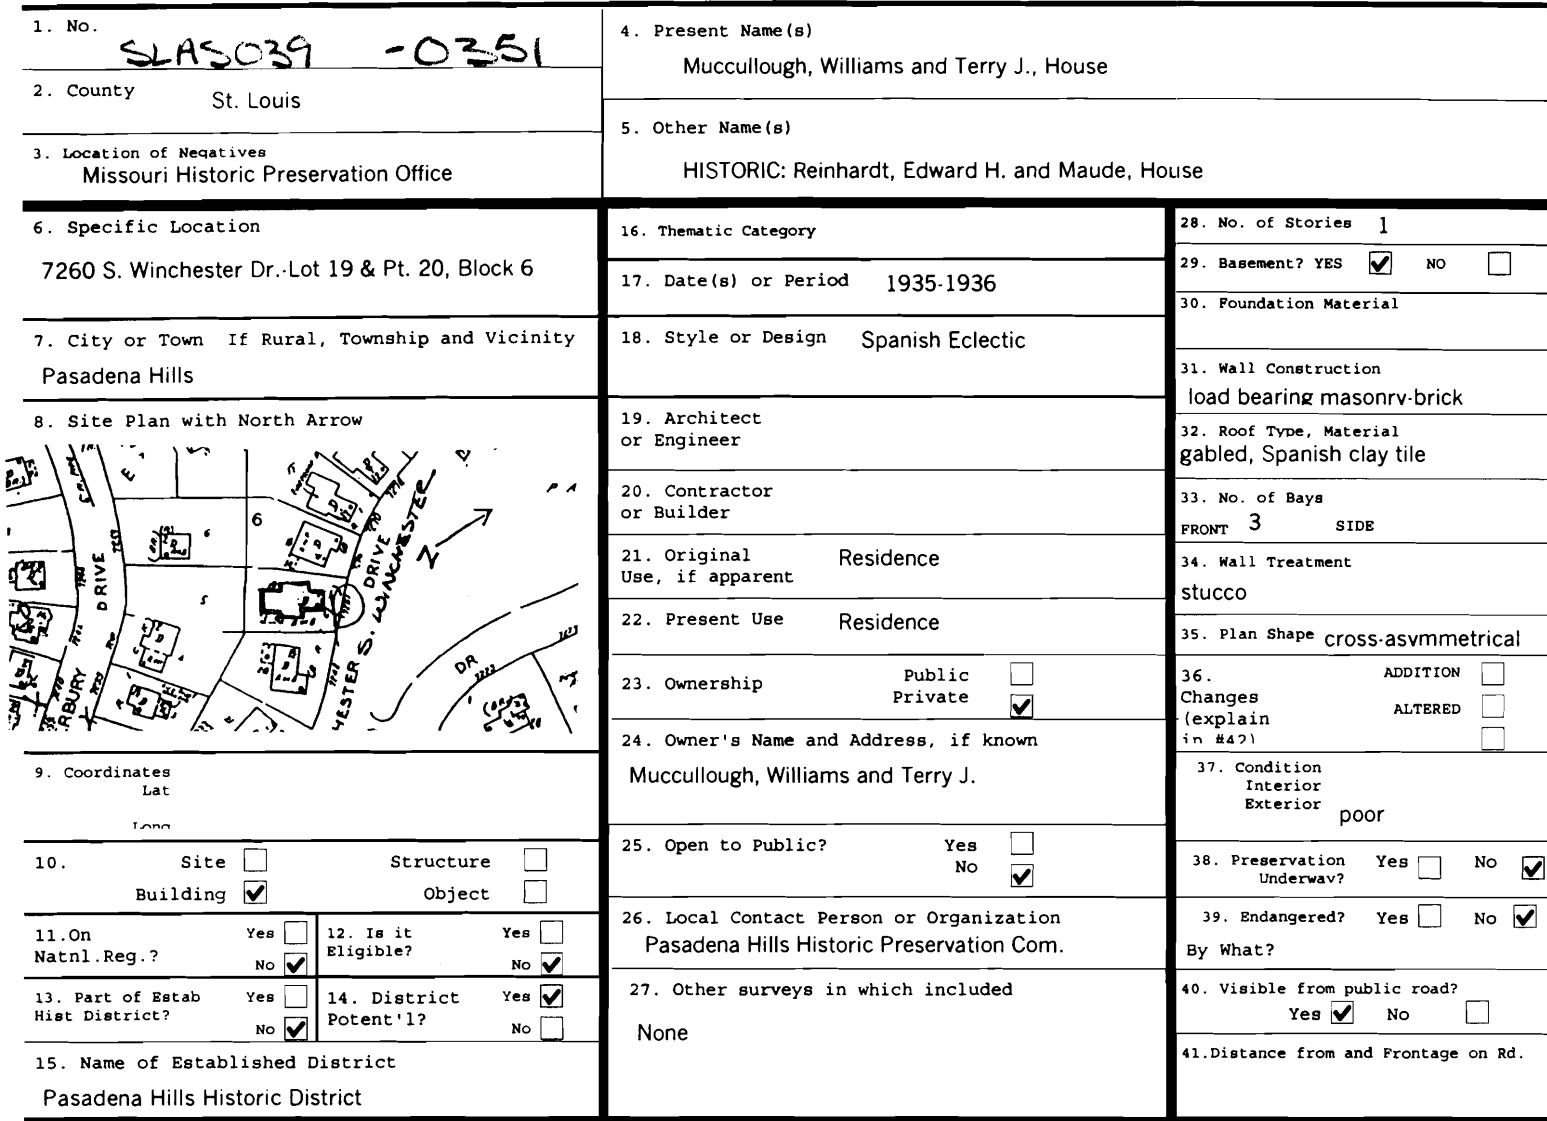 1. No.
SLAS039 -0351
2. County
St. Louis
3. Location of Negatives
Missouri Historic Preservation Office
4. Present Name(s)
Muccullough, Williams and Terry J., House
5. Other Name(s)
HISTORIC: Reinhardt, Edward H. and Maude, House
6. Specific Location
7260 S. Winchester Dr.-Lot 19 & Pt. 20, Block 6
7. City or Town If Rural, Township and Vicinity
Pasadena Hills
8. Site Plan with North Arrow
6
6
5
DRIVE
DRIVE
S. WINCHESTER
N
P A
DR
RBURY
HESTER
9. Coordinates
Lat
Long
10. Site
Structure
Building ✔
Object
11. On
Natnl.Reg.?
Yes
No ✔
12. Is it
Eligible?
Yes
No ✔
13. Part of Estab
Hist District?
Yes
No ✔
14. District
Potent'l?
Yes ✔
No
15. Name of Established District
Pasadena Hills Historic District
16. Thematic Category
17. Date(s) or Period 1935-1936
18. Style or Design Spanish Eclectic
19. Architect
or Engineer
20. Contractor
or Builder
21. Original Residence
Use, if apparent
22. Present Use Residence
23. Ownership
Public
Private ✔
24. Owner's Name and Address, if known
Muccullough, Williams and Terry J.
25. Open to Public?
Yes
No ✔
26. Local Contact Person or Organization
Pasadena Hills Historic Preservation Com.
27. Other surveys in which included
None
28. No. of Stories 1
29. Basement? YES ✔ NO
30. Foundation Material
31. Wall Construction
load bearing masonry-brick
32. Roof Type, Material
gabled, Spanish clay tile
33. No. of Bays
FRONT 3 SIDE
34. Wall Treatment
stucco
35. Plan Shape cross-asymmetrical
36.
Changes
(explain
in #42)
ADDITION
ALTERED
37. Condition
Interior
Exterior poor
38. Preservation
Underway?
Yes No ✔
39. Endangered? Yes No ✔
By What?
40. Visible from public road?
Yes ✔ No
41. Distance from and Frontage on Rd.